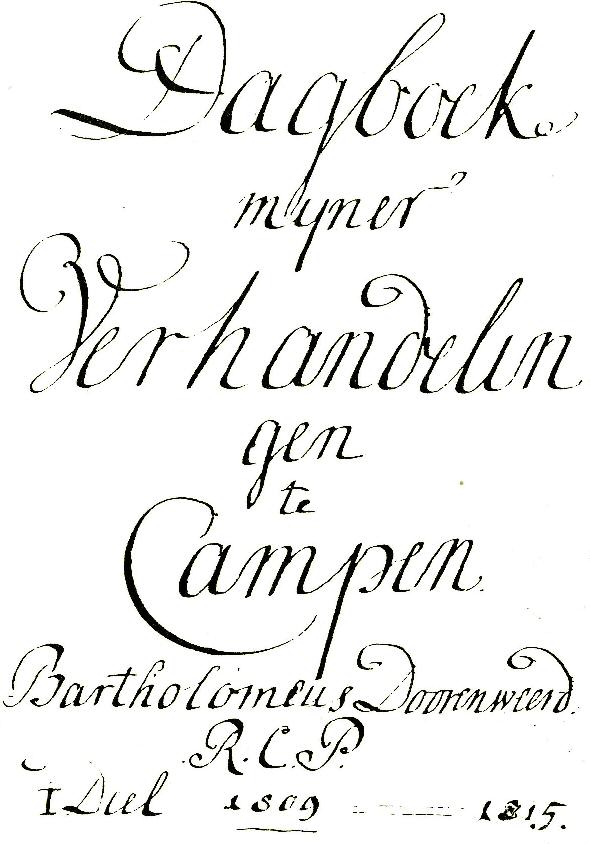 Dagboek
mijner
Verhandelin
gen
te
Campen.
Bartholomeus Doorenweerd.
R. C. P.
I Deel 1809 — 1815.